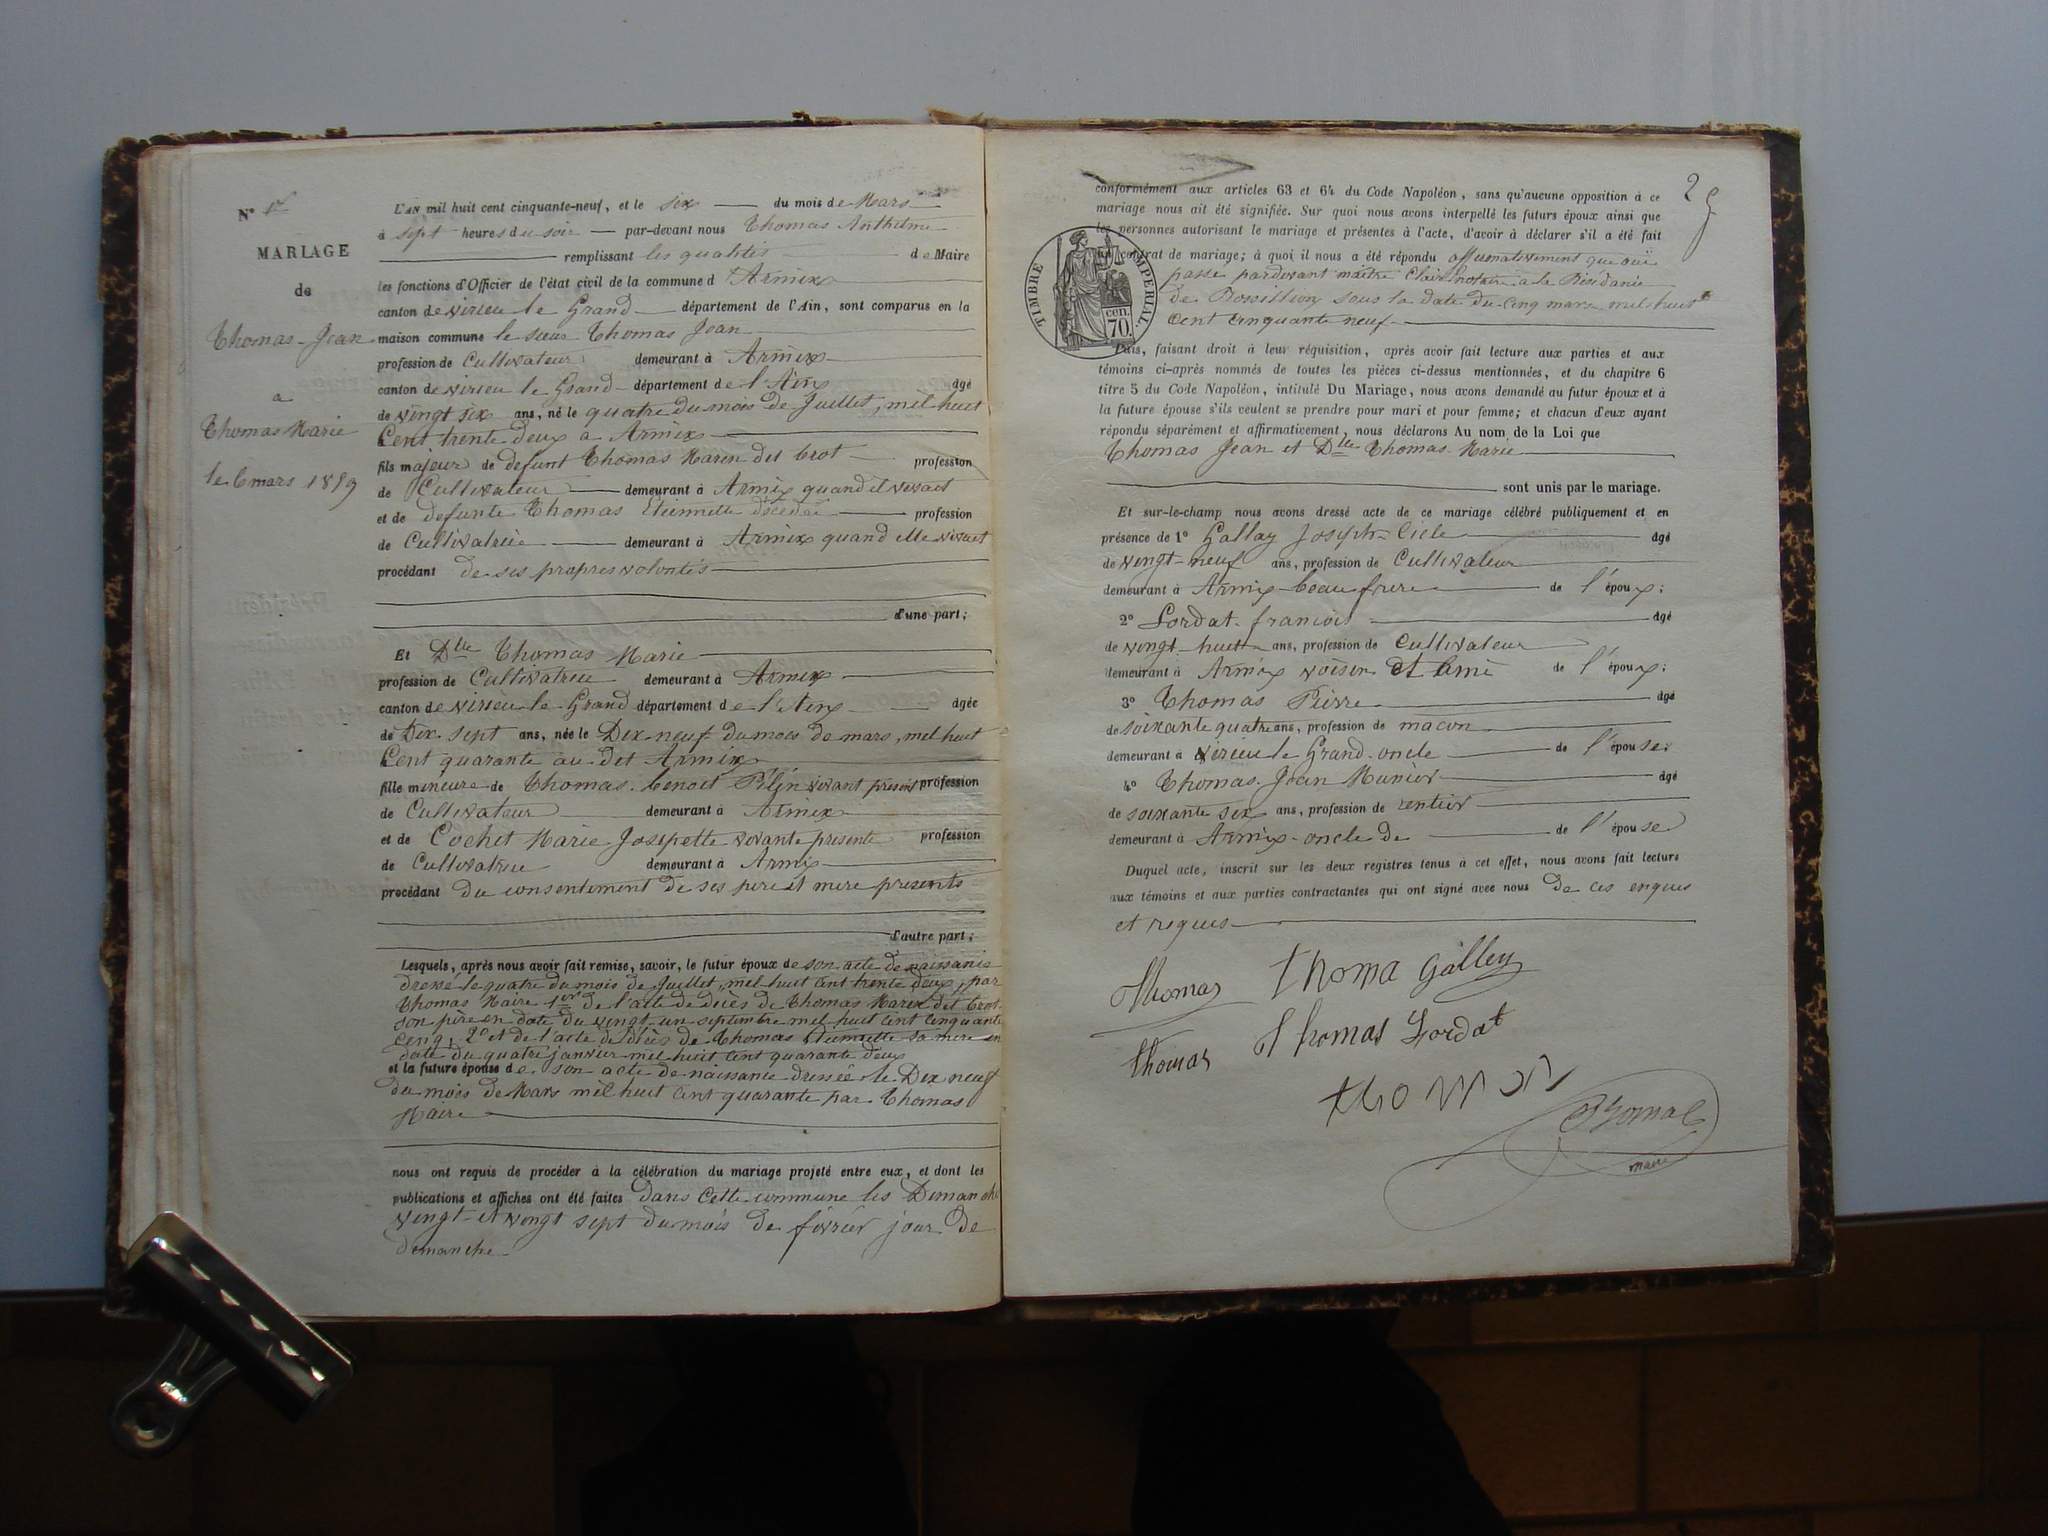 N° 1er
MARIAGE
de
Thomas Jean
a
Thomas Marie
le 6 mars 1859
L'AN mil huit cent cinquante-neuf, et le six du mois de Mars
à sept heures du soir par-devant nous Thomas Anthelme
remplissant les qualités de Maire
les fonctions d'Officier de l'état civil de la commune d Armix
canton de virieu le Grand département de l'Ain, sont comparus en la
maison commune le sieur Thomas Jean
profession de Cultivateur demeurant à Armix
canton de virieu le Grand département de l'Ain âgé
de vingt six ans, né le quatre du mois de Juillet, mil huit
Cent trente deux a Armix
fils majeur de defunt Thomas Marin dit brot profession
de Cultivateur demeurant à Armix quand il vivait
et de defunte Thomas Etiennette décédée profession
de Cultivatrice demeurant à Armix quand elle vivait
procédant de ses propres volontés
d'une part;
Et Dlle Thomas Marie
profession de Cultivatrice demeurant à Armix
canton de virieu le Grand département de l'Ain âgée
de Dix sept ans, née le Dix neuf du mois de mars, mil huit
Cent quarante au dit Armix
fille mineure de Thomas benoit Pilin vivant présent profession
de Cultivateur demeurant à Armix
et de Cochet Marie Josepette vivante présente profession
de Cultivatrice demeurant à Armix
procédant du consentement de ses pere et mere presents
d'autre part;
Lesquels, après nous avoir fait remise, savoir, le futur époux de son acte de naissance
dressé le quatre du mois de Juillet, mil huit cent trente deux, par
Thomas Maire 1er de l'acte de décès de Thomas Marin dit brot
son père en date du vingt un septembre mil huit cent cinquante
Cinq, 2° et de l'acte de Décès de Thomas Etiennette sa mere en
date du quatre janvier mil huit cent quarante deux
et la future épouse de son acte de naissance dressée le Dix neuf
du mois de Mars mil huit cent quarante par Thomas
Maire
nous ont requis de procéder à la célébration du mariage projeté entre eux, et dont les
publications et affiches ont été faites dans cette commune les Dimanche
vingt et vingt sept du mois de février jour de
dimanche
29
conformément aux articles 63 et 64 du Code Napoléon, sans qu'aucune opposition à ce
mariage nous ait été signifiée. Sur quoi nous avons interpellé les futurs époux ainsi que
les personnes autorisant le mariage et présentes à l'acte, d'avoir à déclarer s'il a été fait
un contrat de mariage; à quoi il nous a été répondu affirmativement que oui
passé pardevant maitre Clair notaire a la Résidance
de Rossillion sous la date du cinq mars mil huit
cent cinquante neuf
TIMBRE IMPERIAL.
cen. 70.
Puis, faisant droit à leur réquisition, après avoir fait lecture aux parties et aux
témoins ci-après nommés de toutes les pièces ci-dessus mentionnées, et du chapitre 6
titre 5 du Code Napoléon, intitulé Du Mariage, nous avons demandé au futur époux et à
la future épouse s'ils veulent se prendre pour mari et pour femme; et chacun d'eux ayant
répondu séparément et affirmativement, nous déclarons Au nom de la Loi que
Thomas Jean et Dlle Thomas Marie
sont unis par le mariage.
Et sur-le-champ nous avons dressé acte de ce mariage célébré publiquement et en
présence de 1° Gallay Joseph âgé
de vingt-neuf ans, profession de Cultivateur
demeurant à Armix beau frere de l'époux;
2° Lordat francois âgé
de vingt huit ans, profession de Cultivateur
demeurant à Armix voisin et ami de l'époux;
3° Thomas Pierre âgé
de soixante quatre ans, profession de macon
demeurant à virieu le Grand oncle de l'épouse
4° Thomas Jean Munier âgé
de soixante six ans, profession de rentier
demeurant à Armix oncle de de l'épouse
Duquel acte, inscrit sur les deux registres tenus à cet effet, nous avons fait lecture
aux témoins et aux parties contractantes qui ont signé avec nous de ces enquis
et requis
Thomas thoma Galley
thomas thomas Lordat
thomas
Thomas
maire